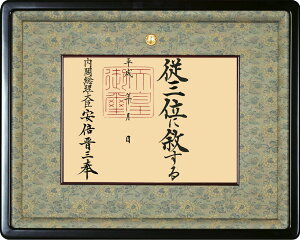 従三位に敘する
平成 年 月 日
天皇御璽
内閣総理大臣 安倍晋三 奉